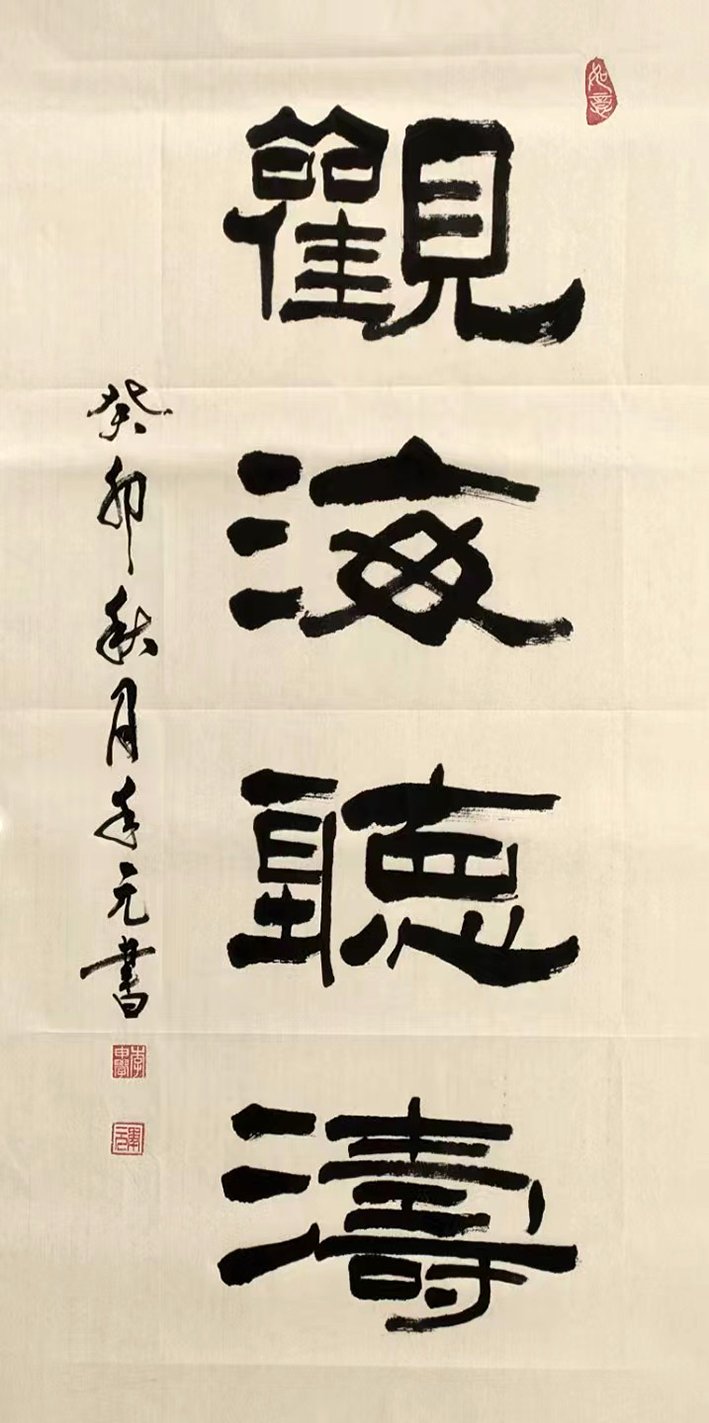 如意
觀海聽濤
癸卯秋月李元書